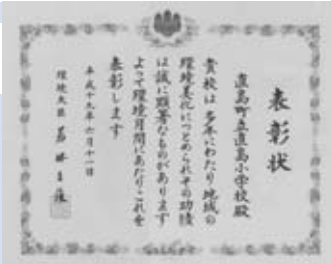 表彰状
直島町立直島小学校殿
貴校は多年にわたり地域の
環境美化につとめられその功績
は誠に顕著なものがあります
よって環境月間にあたりこれを
表彰します
平成十九年六月十一日
環境大臣 若林正俊